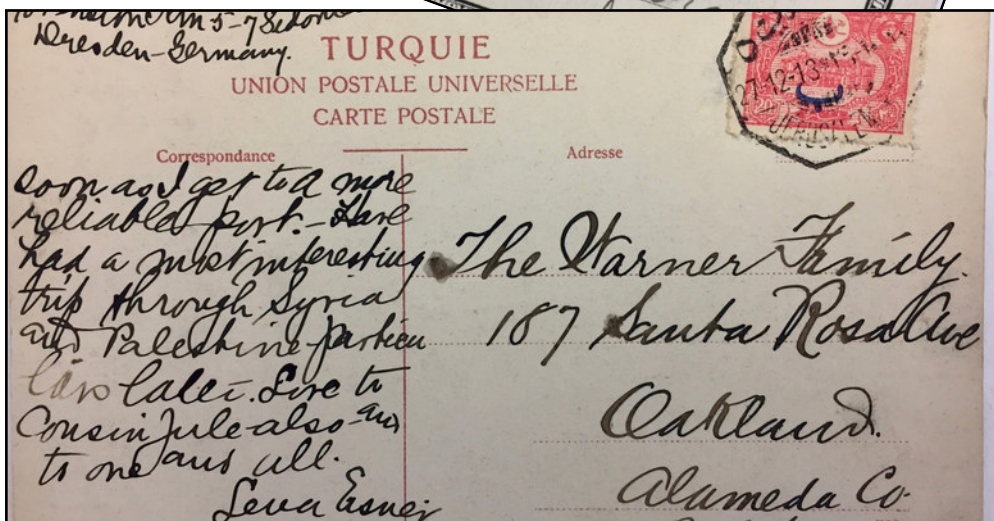 5-7
Dresden-Germany.
TURQUIE
UNION POSTALE UNIVERSELLE
CARTE POSTALE
27-12-13
Correspondance
Adresse
soon as I get to a more
reliable port. - Have
had a most interesting
trip through Syria
and Palestine particu
lars later. Love to
Cousin Jule also - and
to one and all.
Leva
The Warner Family.
187 Santa Rosa Ave
Oakland.
Alameda Co.